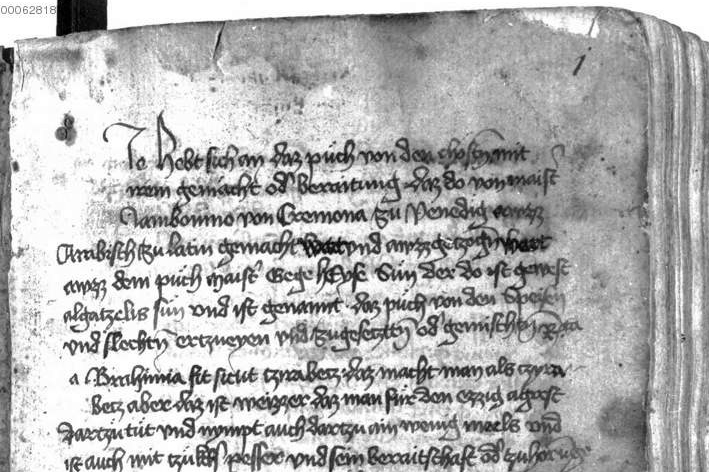 00062818
1
Ie Hebt sich an daz púch von den chosten mit
irem gemácht od' beraitung daz do von maist'
Jambonino von Cremona zu Venedig awzz
Arabisch zu latin gemacht wart vnd awzzgezogen wart
awzz dem púch maist' Gege Sún der do ist gewest
algatzelis sún vnd ist genannt daz púch von den Speisen
vnd slechten ertzneyen vnd zugesetzten od' gemischten
a Brahimia fit sicut tzirabetz daz macht man als tzyra
betz aber daz ist weizzer daz man fúr den ezzig agrest
dartzú tút vnd nympt auch dartzu ain wenig meels vnd
ist auch mit pfeffer vnd sein beraitschaft od'